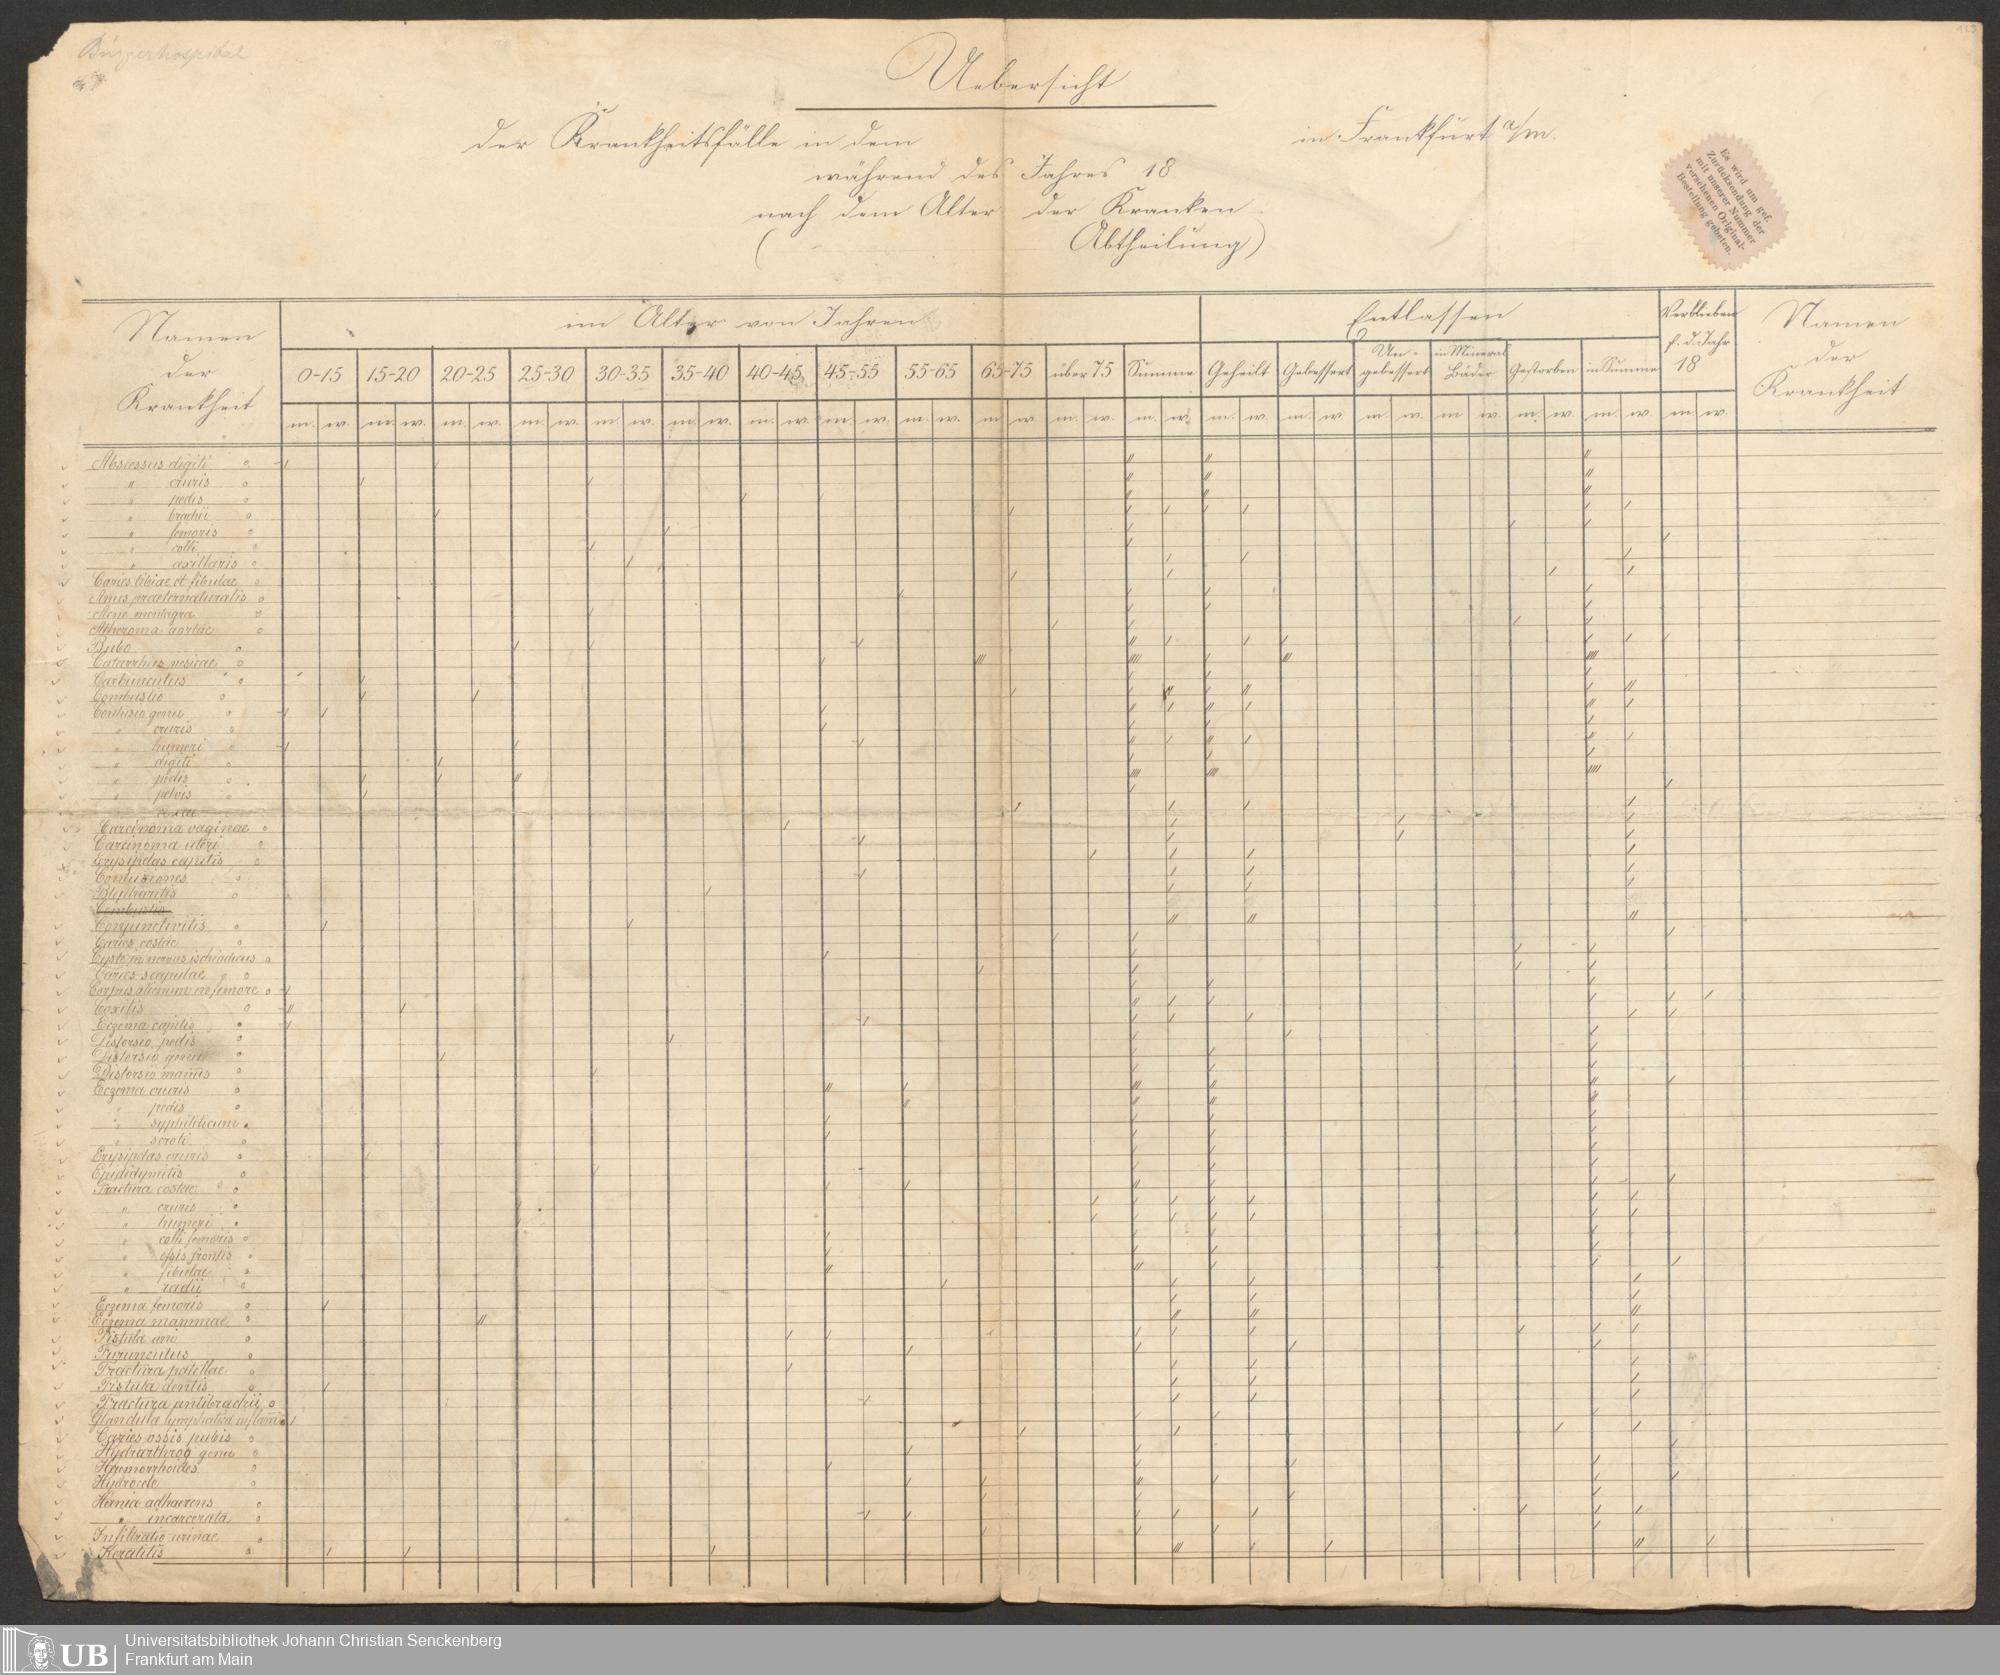 Bürgerhospital
Uebersicht
der Krankheitsfälle in dem in Frankfurt a/m.
während des Jahres 18
nach dem Alter der Kranken
( Abtheilung)
Es wird um gef.
Zurücksendung der
mit unserer Nummer
versehenen Original-
Bestellung gebeten.
Namen der Krankheit
im Alter von Jahren
Entlassen
Verblieben f. d. Jahr 18
Namen der Krankheit
0-15 15-20 20-25 25-30 30-35 35-40 40-45 45-55 55-65 65-75 über 75 Summe Geheilt Gebessert Un-gebessert in Mineral Bäder Gestorben in Summe
m. w. m. w. m. w. m. w. m. w. m. w. m. w. m. w. m. w. m. w. m. w. m. w. m. w. m. w. m. w. m. w. m. w. m. w. m. w.
Abscessus digiti
" cruris
" pedis
" brachii
" femoris
" colli
" axillaris
Caries tibiae et fibulae
Anus praeternaturalis
Acne mentagra
Atheroma aortae
Bubo
Catarrhus vesicae
Carbunculus
Combustio
Contusio genu
" cruris
" humeri
" digiti
" pedis
" pelvis
" coxae
Carcinoma vaginae
Carcinoma uteri
Erysipelas capitis
Contusiones
Blepharitis
Combustio
Conjunctivitis
Caries costae
Cyste in nervus ischiadicus
Caries scapulae
Corpus alienum in femore
Coxitis
Eczema capitis
Distorsio pedis
Distorsio genu
Distorsio manus
Eczema cruris
" pedis
" syphiliticum
" scroti
Erysipelas cruris
Epididymitis
Fractura costae
" cruris
" humeri
" colli femoris
" ossis frontis
" fibulae
" radii
Eczema femoris
Eczema mammae
Fistula ani
Furunculus
Fractura patellae
Fistula dentis
Fractura antibrachii
Glandula lymphatica inflam.
Caries ossis pubis
Hydrarthros genu
Haemorrhoides
Hydrocele
Hernia adhaerens
" incarcerata
Infiltratio urinae
Keratitis
UB
Universitätsbibliothek Johann Christian Senckenberg
Frankfurt am Main